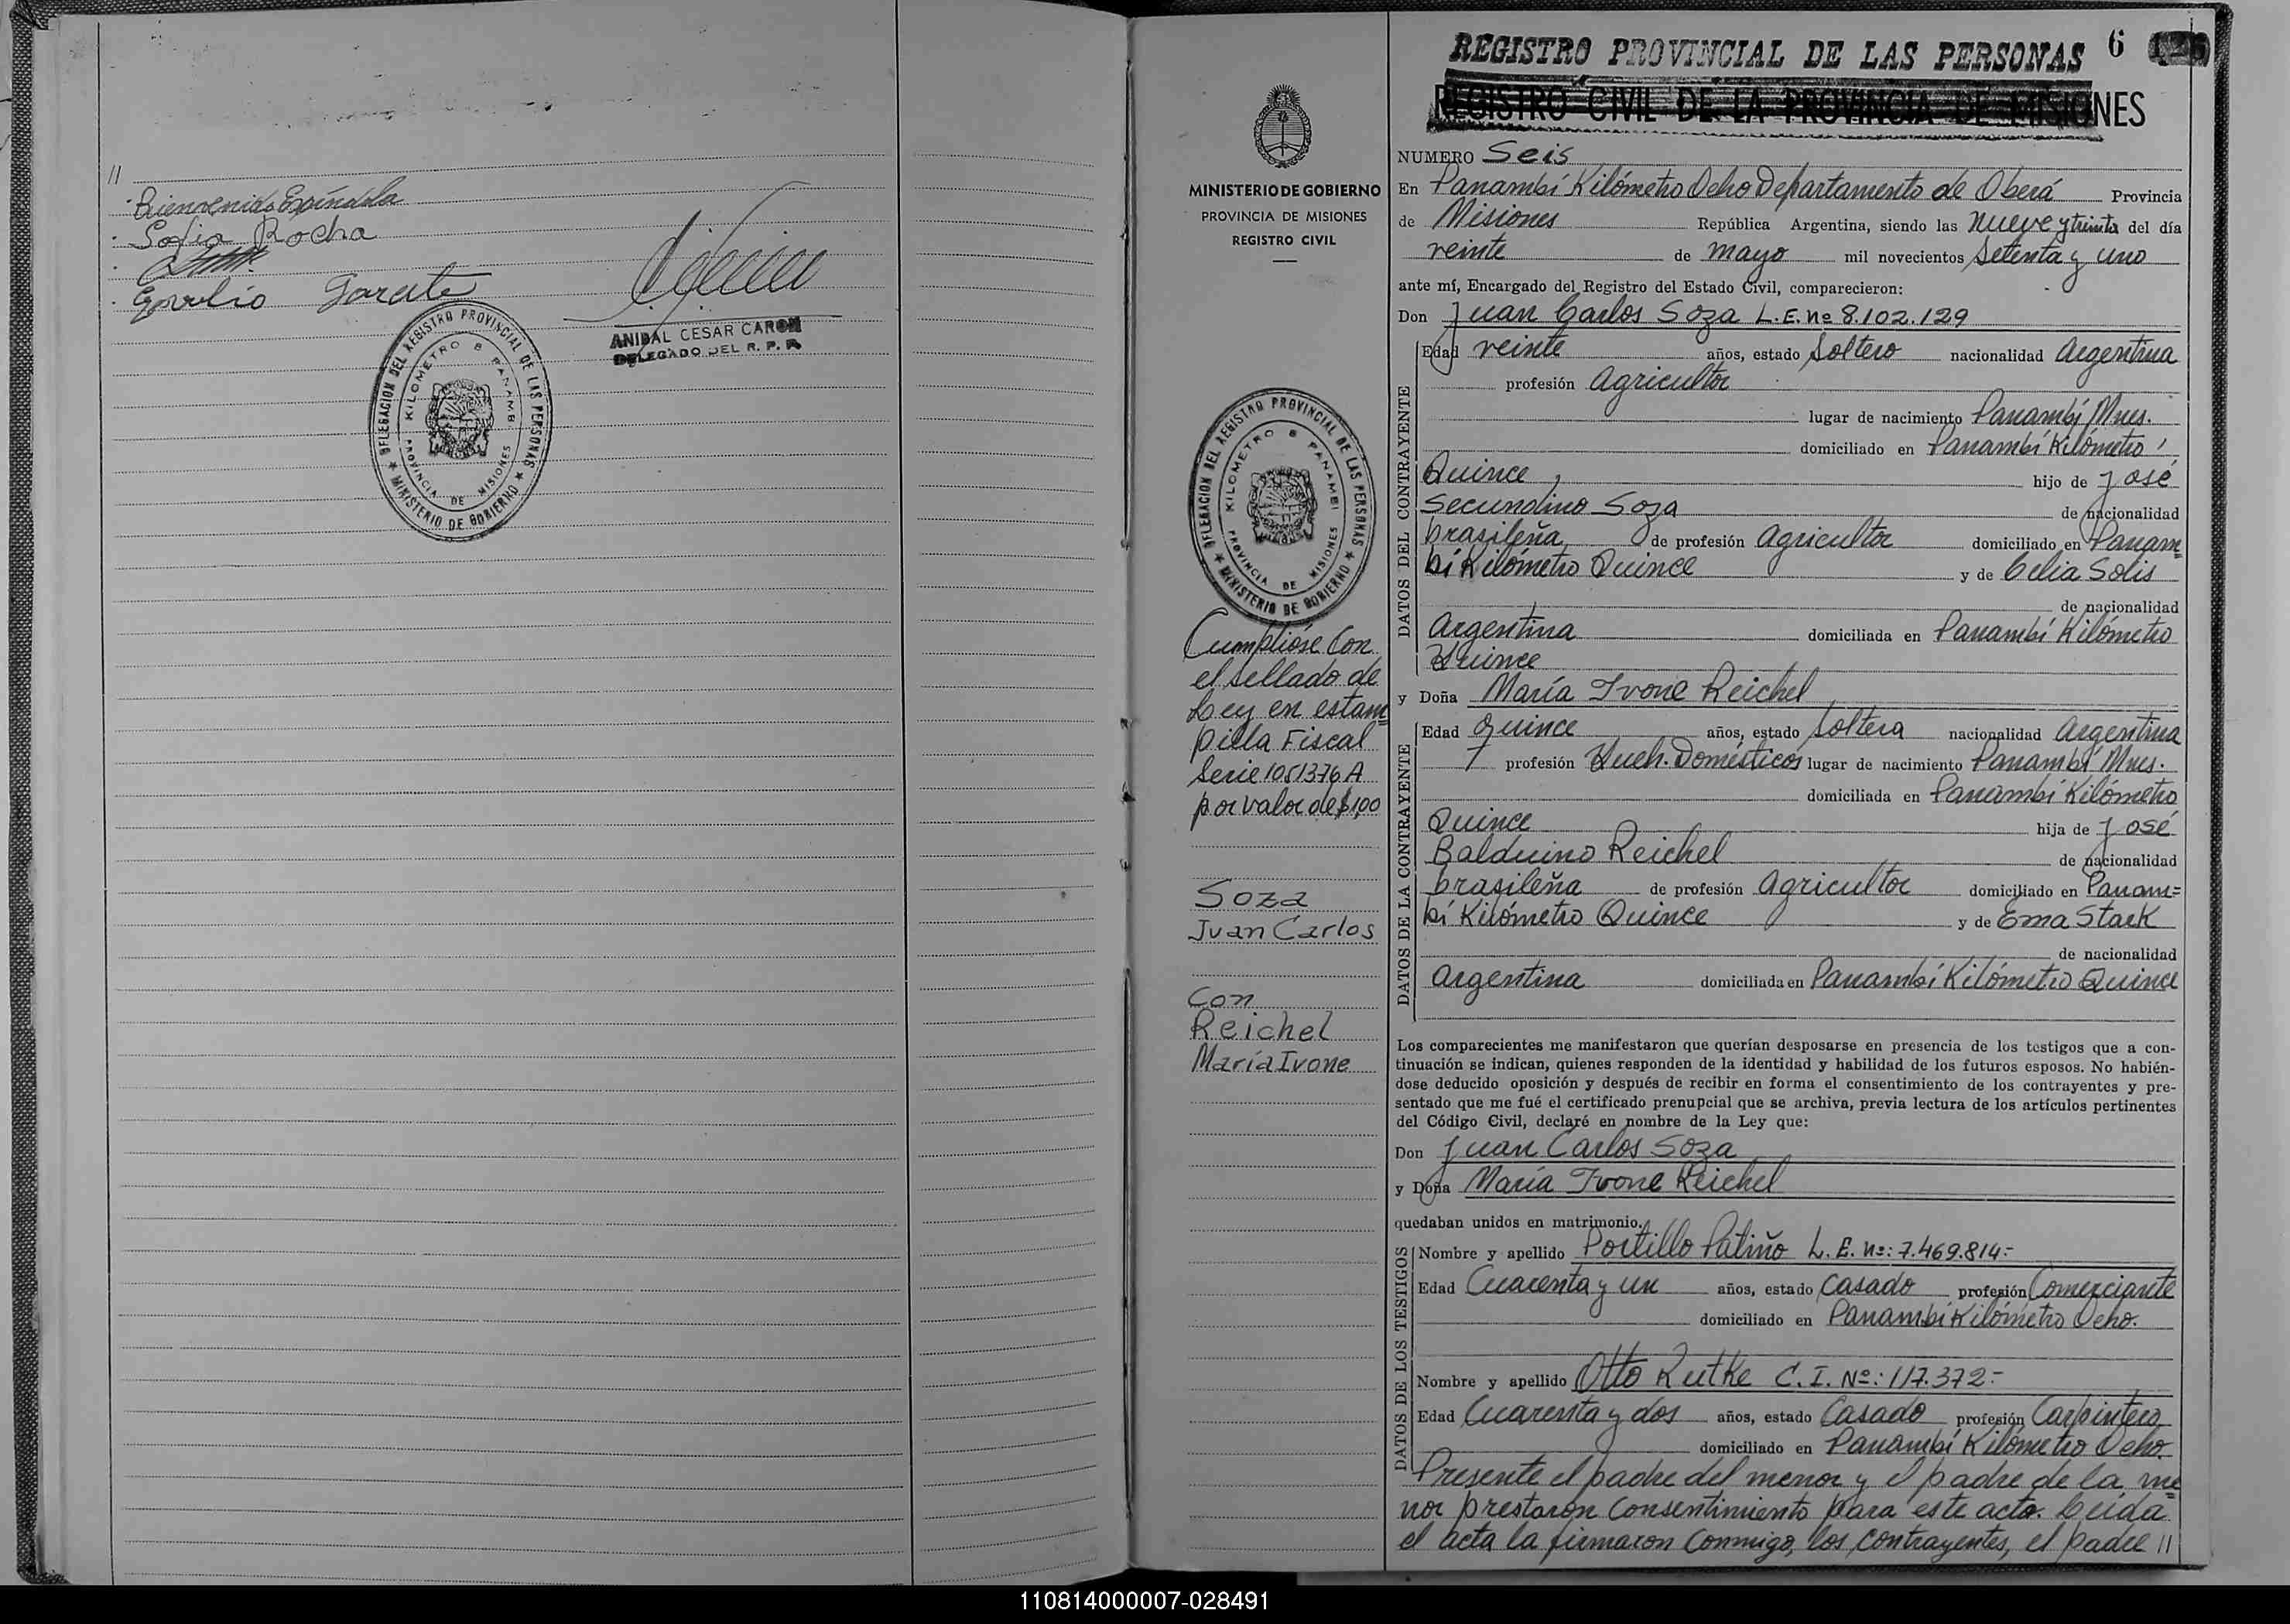 //
Bienvenido Espíndola
Sofia Rocha
Garate
ANIBAL CESAR CARON
DELEGADO DEL R. P. P.
DELEGACION DEL REGISTRO PROVINCIAL DE LAS PERSONAS
KILOMETRO 8 PANAMBI
PROVINCIA DE MISIONES
★ MINISTERIO DE GOBIERNO ★
MINISTERIO DE GOBIERNO
PROVINCIA DE MISIONES
REGISTRO CIVIL
DELEGACION DEL REGISTRO PROVINCIAL DE LAS PERSONAS
KILOMETRO 8 PANAMBI
PROVINCIA DE MISIONES
★ MINISTERIO DE GOBIERNO ★
Cumplióse con
el sellado de
Ley en estam=
pilla Fiscal
Serie 1051376 A
por valor de $1,00
Soza
Juan Carlos
Con
Reichel
María Ivone
REGISTRO PROVINCIAL DE LAS PERSONAS 6
REGISTRO CIVIL DE LA PROVINCIA DE MISIONES
NUMERO Seis
En Panambí Kilómetro Ocho Departamento de Oberá Provincia
de Misiones República Argentina, siendo las nueve y treinta del día
veinte de mayo mil novecientos Setenta y uno
ante mí, Encargado del Registro del Estado Civil, comparecieron:
Don Juan Carlos Soza L.E. nº 8.102.129
DATOS DEL CONTRAYENTE
Edad veinte años, estado Soltero nacionalidad Argentina
profesión Agricultor
lugar de nacimiento Panambí Mnes.
domiciliado en Panambí Kilómetro
Quince, hijo de José
Secundino Soza de nacionalidad
brasileña de profesión Agricultor domiciliado en Panam=
bí Kilómetro Quince y de Celia Solis
de nacionalidad
Argentina domiciliada en Panambí Kilómetro
Quince
y Doña María Ivone Reichel
DATOS DE LA CONTRAYENTE
Edad Quince años, estado Soltera nacionalidad Argentina
profesión Queh. Domésticos lugar de nacimiento Panambí Mnes.
domiciliada en Panambí Kilómetro
Quince hija de José
Balduino Reichel de nacionalidad
brasileña de profesión Agricultor domiciliado en Panam=
bí Kilómetro Quince y de Ema Stark
de nacionalidad
argentina domiciliada en Panambí Kilómetro Quince
Los comparecientes me manifestaron que querían desposarse en presencia de los testigos que a con-
tinuación se indican, quienes responden de la identidad y habilidad de los futuros esposos. No habién-
dose deducido oposición y después de recibir en forma el consentimiento de los contrayentes y pre-
sentado que me fué el certificado prenupcial que se archiva, previa lectura de los artículos pertinentes
del Código Civil, declaré en nombre de la Ley que:
Don Juan Carlos Soza
y Doña María Ivone Reichel
quedaban unidos en matrimonio.
DATOS DE LOS TESTIGOS
Nombre y apellido Portillo Patiño L. E. nº: 7.469.814=
Edad Cuarenta y un años, estado Casado profesión Comerciante
domiciliado en Panambí Kilómetro Ocho.
Nombre y apellido Otto Rutke C. I. Nº: 117.372=
Edad Cuarenta y dos años, estado Casado profesión Carpintero
domiciliado en Panambí Kilómetro Ocho.
Presente el padre del menor y el padre de la me=
nor prestaron consentimiento para este acto. Leida
el acta la firmaron conmigo, los contrayentes, el padre //
110814000007-028491